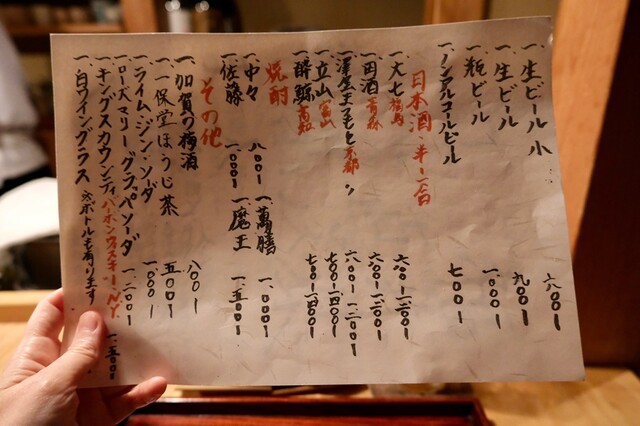 一、生ビール 小 六〇〇ー
一、生ビール 九〇〇ー
一、瓶ビール 一、〇〇〇ー
一、ノンアルコールビール 七〇〇ー
日本酒・半・一合
一、大七 福島 六〇〇ー一、二〇〇ー
一、田酒 青森 六〇〇ー一、二〇〇ー
一、澤屋まつもと 京都 六〇〇ー一、二〇〇ー
一、立山 富山 七〇〇ー一、四〇〇ー
一、酔鯨 高知 七〇〇ー一、四〇〇ー
焼酎
一、中々 八〇〇ー 一、萬膳 一、〇〇〇ー
一、佐藤 一、〇〇〇ー 一、魔王 一、五〇〇ー
その他
一、加賀の梅酒 八〇〇ー
一、一保堂ほうじ茶 五〇〇ー
一、ライム・ジン・ソーダ 一、〇〇〇ー
一、ローズマリー・グラッパソーダ 一、二〇〇ー
一、キングスカウンティ バーボンウイスキー N.Y. 一、五〇〇ー
一、白ワイングラス ※ボトルも有ります